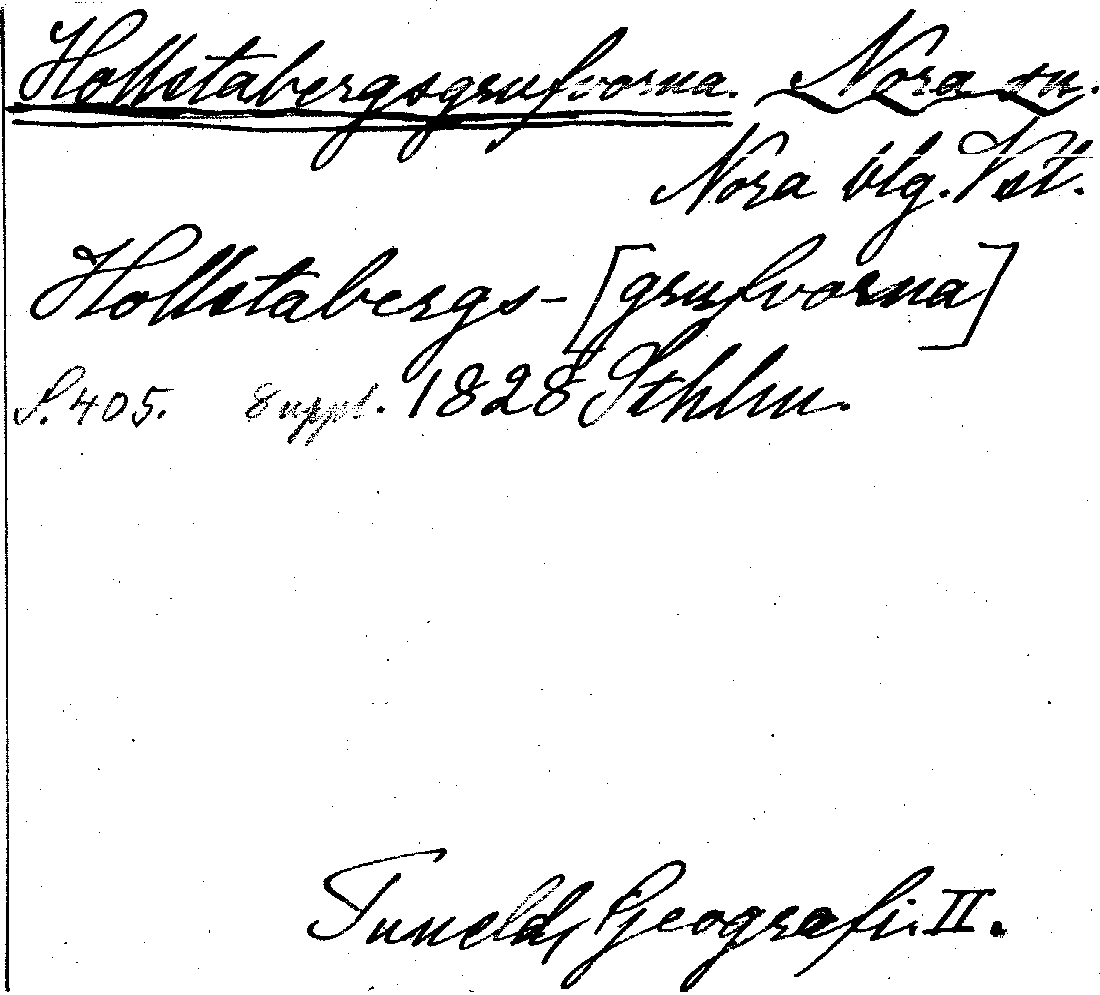 Hollstabergsgrufvorna. Nora sn.
Nora blg. Vstl.
Hollstabergs-[grufvorna]
S. 405. Suppl. 1828 Sthlm.
Tuneld, Geografi. II.